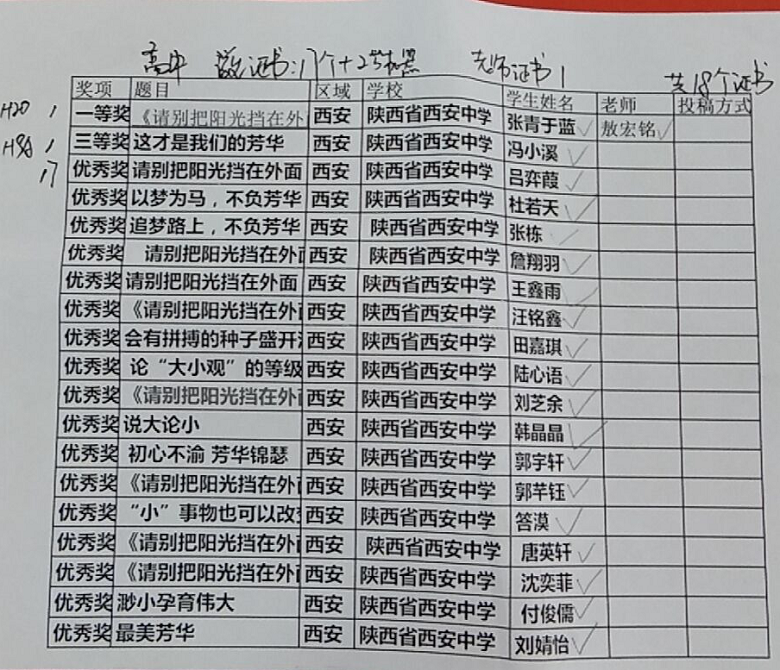 高中 证书:17个+2 老师证书1 共18个证书
奖项 题目 区域 学校 学生姓名 老师 投稿方式
1 一等奖 《请别把阳光挡在外 西安 陕西省西安中学 张青于蓝 敖宏铭
1 三等奖 这才是我们的芳华 西安 陕西省西安中学 冯小溪
17 优秀奖 请别把阳光挡在外面 西安 陕西省西安中学 吕弈葭
优秀奖 以梦为马，不负芳华 西安 陕西省西安中学 杜若天
优秀奖 追梦路上，不负芳华 西安 陕西省西安中学 张栋
优秀奖 请别把阳光挡在外 西安 陕西省西安中学 詹翔羽
优秀奖 请别把阳光挡在外面 西安 陕西省西安中学 王鑫雨
优秀奖 《请别把阳光挡在外 西安 陕西省西安中学 汪铭鑫
优秀奖 会有拼搏的种子盛开 西安 陕西省西安中学 田嘉琪
优秀奖 论“大小观”的等级 西安 陕西省西安中学 陆心语
优秀奖 《请别把阳光挡在外 西安 陕西省西安中学 刘芝余
优秀奖 说大论小 西安 陕西省西安中学 韩晶晶
优秀奖 初心不渝 芳华锦瑟 西安 陕西省西安中学 郭宇轩
优秀奖 《请别把阳光挡在外 西安 陕西省西安中学 郭芊钰
优秀奖 “小”事物也可以改 西安 陕西省西安中学 答漠
优秀奖 《请别把阳光挡在外 西安 陕西省西安中学 唐英轩
优秀奖 《请别把阳光挡在外 西安 陕西省西安中学 沈奕菲
优秀奖 渺小孕育伟大 西安 陕西省西安中学 付俊儒
优秀奖 最美芳华 西安 陕西省西安中学 刘婧怡